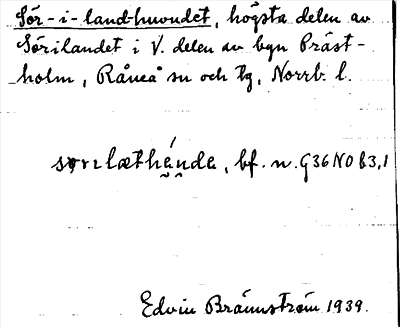 Sör-i-land-huvudet, högsta delen av
Sörilandet i V. delen av byn Präst-
holm, Råneå sn och tg, Norrb. l.
bf. n. G36 NO b3,1
Edvin Brännström 1939.